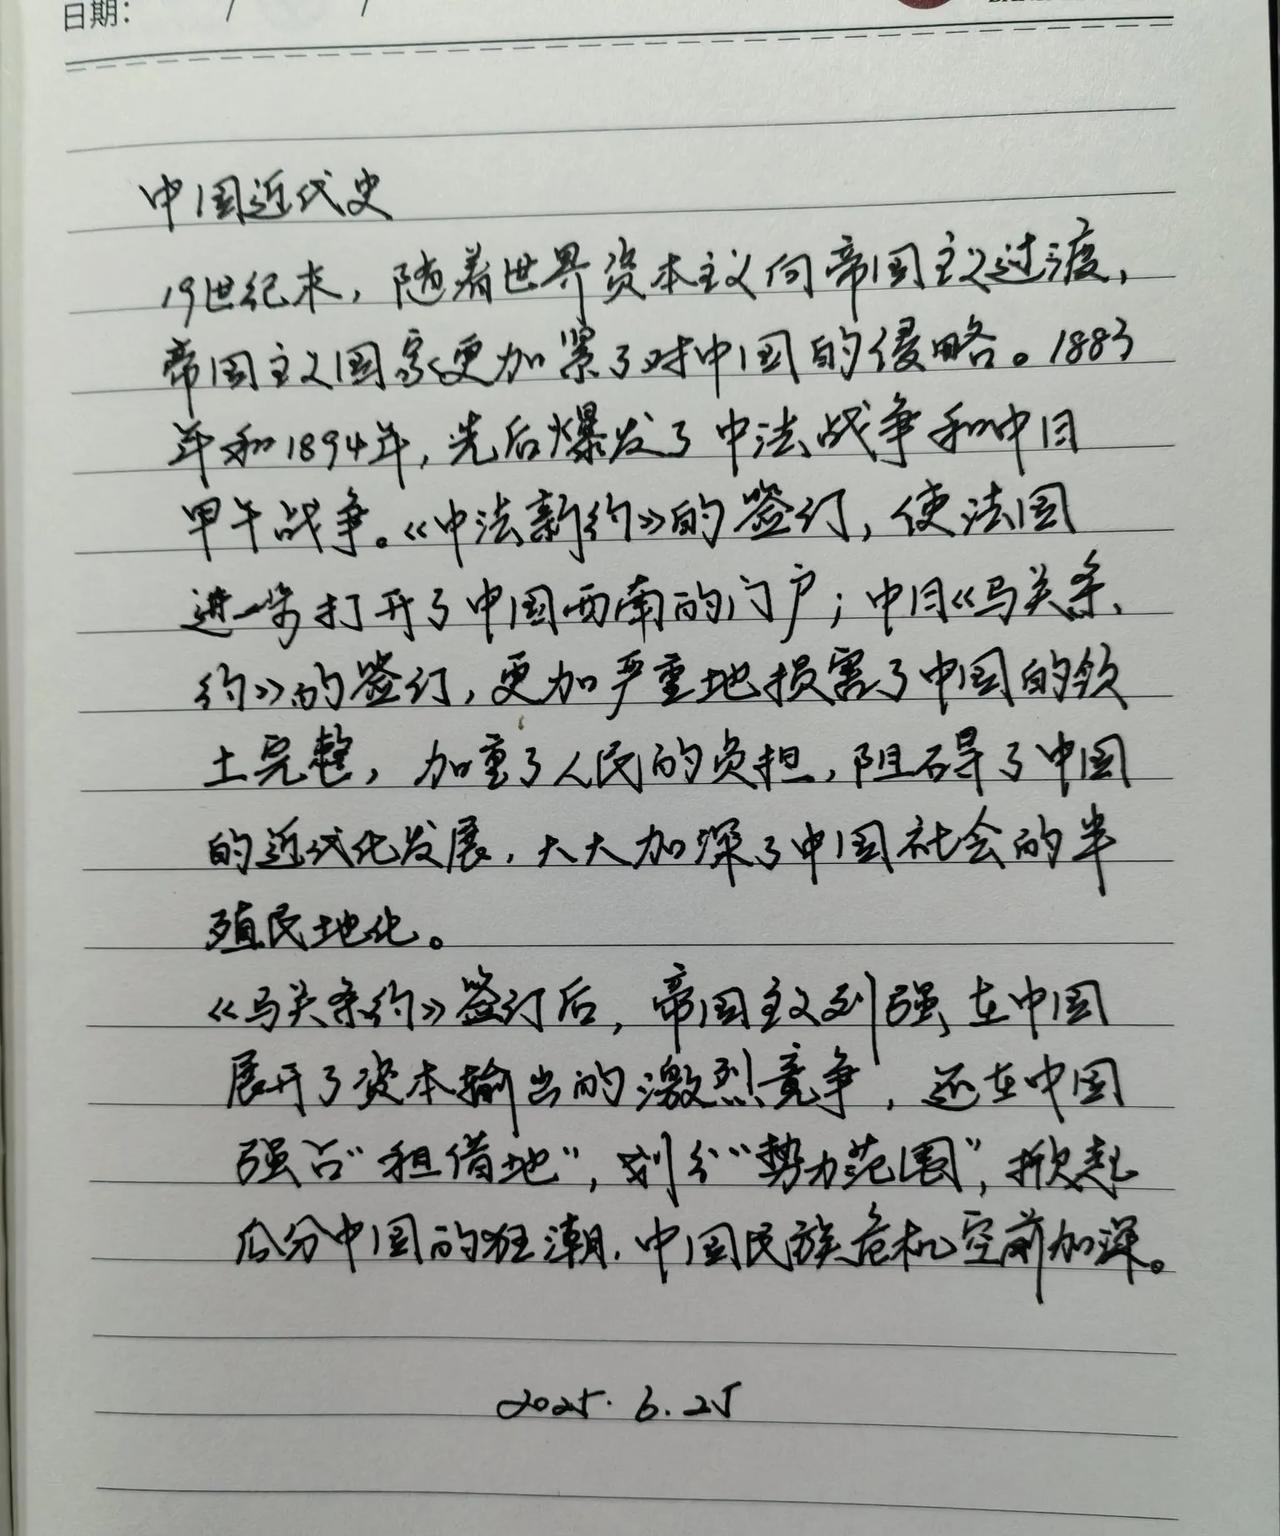 日期: / /
中国近代史
19世纪末，随着世界资本主义向帝国主义过渡，
帝国主义国家更加紧了对中国的侵略。1883
年和1894年，先后爆发了中法战争和中日
甲午战争。《中法新约》的签订，使法国
进一步打开了中国西南的门户；中日《马关条
约》的签订，更加严重地损害了中国的领
土完整，加重了人民的负担，阻碍了中国
的近代化发展，大大加深了中国社会的半
殖民地化。
《马关条约》签订后，帝国主义列强在中国
展开了资本输出的激烈竞争，还在中国
强占“租借地”，划分“势力范围”，掀起
瓜分中国的狂潮．中国民族危机空前加深。
2025.6.25